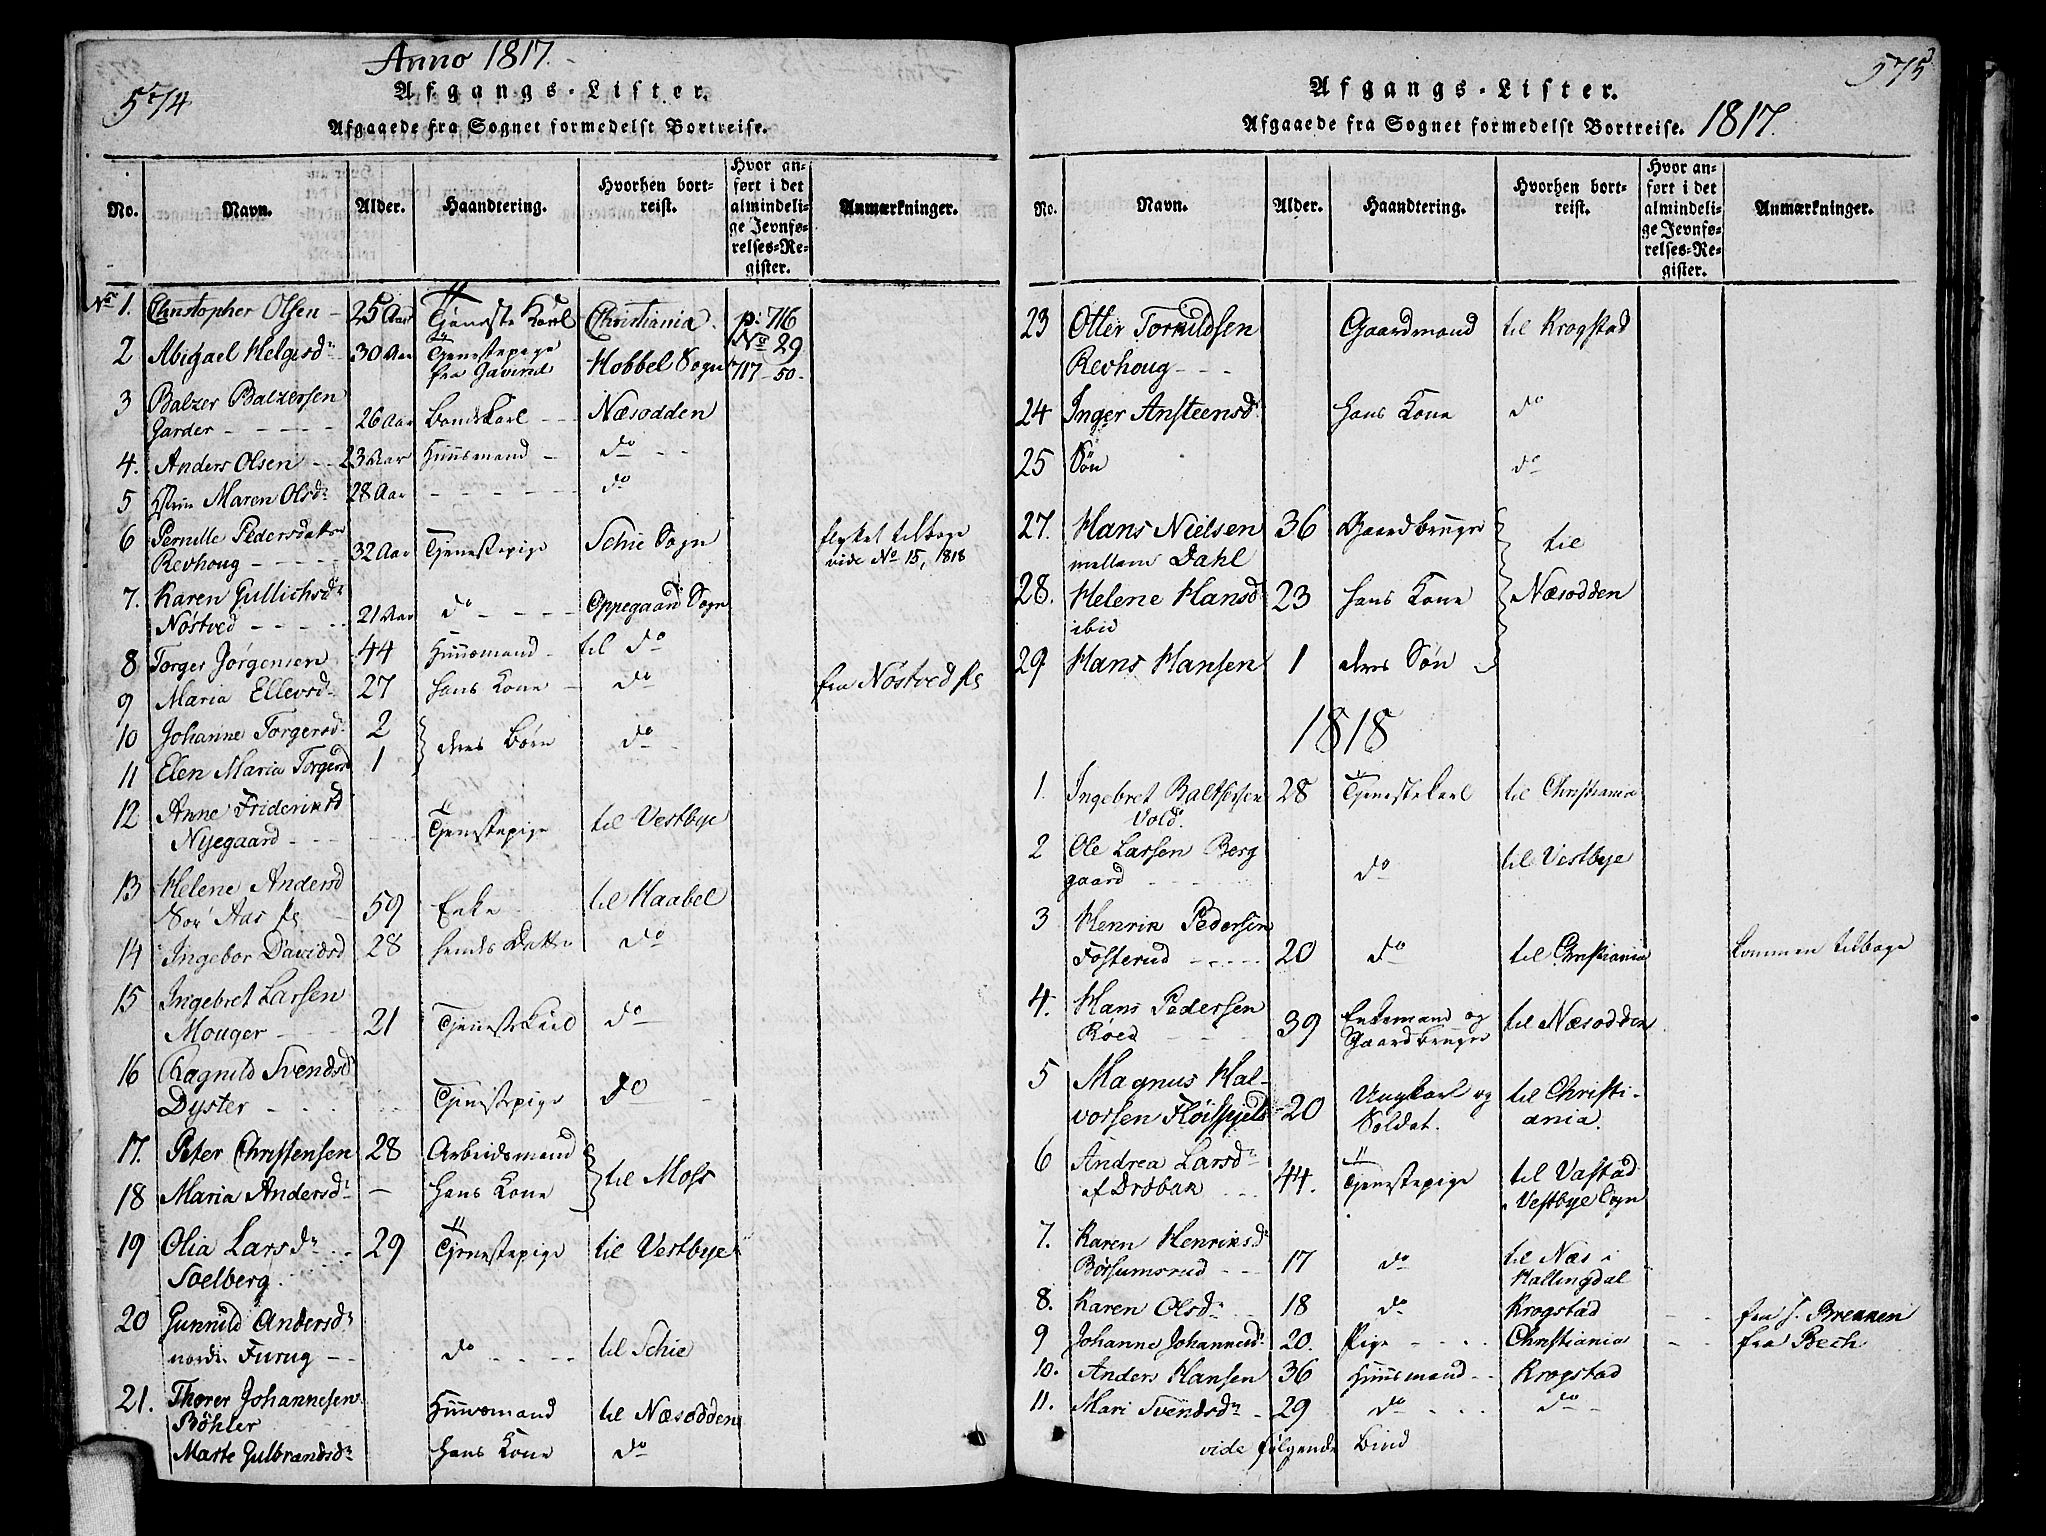 574
Anno 1817.
Afgangs-Lister.
Afgaaede fra Sognet formedelst Bortreise.
No. Navn. Alder. Haandtering. Hvorhen bort-reist. Hvor an-ført i det almindeli-ge Jevnfø-relses-Re-gister. Anmærkninger.
No 1. Christopher Olsen - 25 Aar Tjeneste Karl Christiania. p: 716 No 29
2 Abigael Helgesdr 30 Aar Tjenestepige fra Hobbel Sogn 717-50-
3 Balzer Balzersen
Garder - - - - - 26 Aar Næsodden
4. Anders Olsen - - 23 Aar Huusmand - do - -
5 Maren Olsdr 28 Aar - - - - - do
6 Pernille Pedersdatter
Revhoug - - - - 32 Aar Tjenestepige Schie Sogn flyttet tilbage
vide No 15, 1818
7. Karen Gullichsdr
Nøstved - - - - 21 Aar do - - - - Oppegaard Sogn
8 Torger Jørgensen 44 Huusmand - til do
9 Maria Ellevsd 27 hans Kone - do fra Nøstved
10 Johanne Torgersdr 2
11 Elen Maria Torgersd 1 deres Børn do
12 Anne Frideriksd
Nyegaard - - - Tjenestepige til Vestbye
13 Helene Andersd
Aas 59 Enke til Haabel
14 Ingebor Davidsd 28 hendes Datter do
15 Ingebret Larsen
Mouger - - - 21 Tjenestekarl do
16 Ragnild Svendsdr
Dyster - - - - Tjenistepige do
17. Peter Christensen 28 Arbeidsmand
18 Maria Andersdr - hans Kone til Moss
19 Olia Larsdr - - 29 Tjenestepige til Vestbye
Soelberg.
20 Gunnild Andersdr
nordr Furug - - do - - - - til Schie
21. Thorer Johannesen
Bøhler Huusmand til Næsodden
Marte Gulbrandsdr hans Kone do
575
Afgangs-Lister.
Afgaaede fra Sognet formedelst Bortreise. 1817.
No. Navn. Alder. Haandtering. Hvorhen bort-reist. Hvor an-ført i det almindeli-ge Jevnfø-relses-Re-gister. Anmærkninger.
23 Otter Torkildsen Gaardmand til Krogstad
Revhoug - - -
24 Inger Ansteensdr hans Kone do
25 Søn do
27. Hans Nielsen 36 Gaardbruger
mellem Dahl til
28. Helene Hansd 23 hans Kone Næsodden
ibid
29 Hans Hansen 1 deres Søn
1818
1. Ingebret Baltsersen 28 Tjenestekarl til Christiania
Vold.
2 Ole Larsen Berg
gaard - - - do til Vestbye
3 Henrik Pedersen
Fosterud - - - - 20 do til Christiania kommen tilbage
4. Hans Pedersen
Roed 39 Enkemand og
Gaardbruger til Næsodden
5 Magnus Hal-
vorsen Fløisspjeld 20 Ungkarl og
Soldat. til Christi-
ania.
6 Andrea Larsdr
af Drøbak - - - 44. Tjenestepige til Vastad
Vestbye Sogn
7. Karen Henriksdr
Børsumsrud - - 17 do til Næs i
Hallingdal
8. Karen Olsdr 18 do Krogstad - - fra Brekken
9 Johanne Johannesdr 20. Pige - - - Christiania - - fra Bech
10. Anders Hansen 36 Huusmand - - Krogstad
11. Mari Svendsdr - 29 do - - - do -
vide følgende Bind